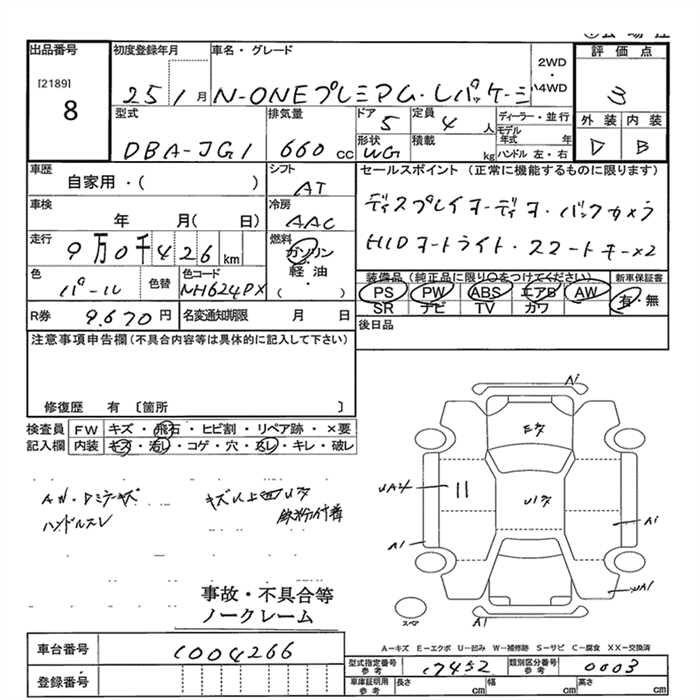 出品番号
[2189]
8
初度登録年月
25 1 月
車名・グレード
N-ONEプレミアム・Lパッケージ
2WD
・
4WD
評価点
3
外装 内装
D B
型式
DBA-JG1
排気量
660 cc
ドア
5
定員
4 人
形状
WG
積載
kg
ディーラー・並行
モデル年式 年
ハンドル 左・右
車歴
自家用・( )
シフト
AT
車検
年 月( 日)
冷房
AAC
走行
9万0千426 km
燃料
ガソリン
・
軽・油
( )
色
パール
色替
色コード
NH624PX
R券
9.670 円
名変通知期限
月 日
セールスポイント (正常に機能するものに限ります)
ディスプレイオーディオ・バックカメラ
HIDオートライト・スマートキー×2
装備品(純正品に限り○をつけてください)
PS PW ABS エアB AW
SR ナビ TV カワ
新車保証書
有・無
後日品
注意事項申告欄(不具合内容等は具体的に記入して下さい)
修復歴 有 〔箇所 〕
検査員記入欄
FW キズ・飛石・ヒビ割・リペア跡・×要
内装 キズ・汚レ・コゲ・穴・スレ・キレ・破レ
ハンドルスレ
事故・不具合等
ノークレーム
A1
A1
A1
スペア
A−キズ E−エクボ U−凹み W−補修跡 S−サビ C−腐食 XX−交換済
車台番号
1004266
登録番号
型式指定番号
参考
17452
類別区分番号
参考
0003
車庫証明用
参考
長さ cm 幅 cm 高さ cm